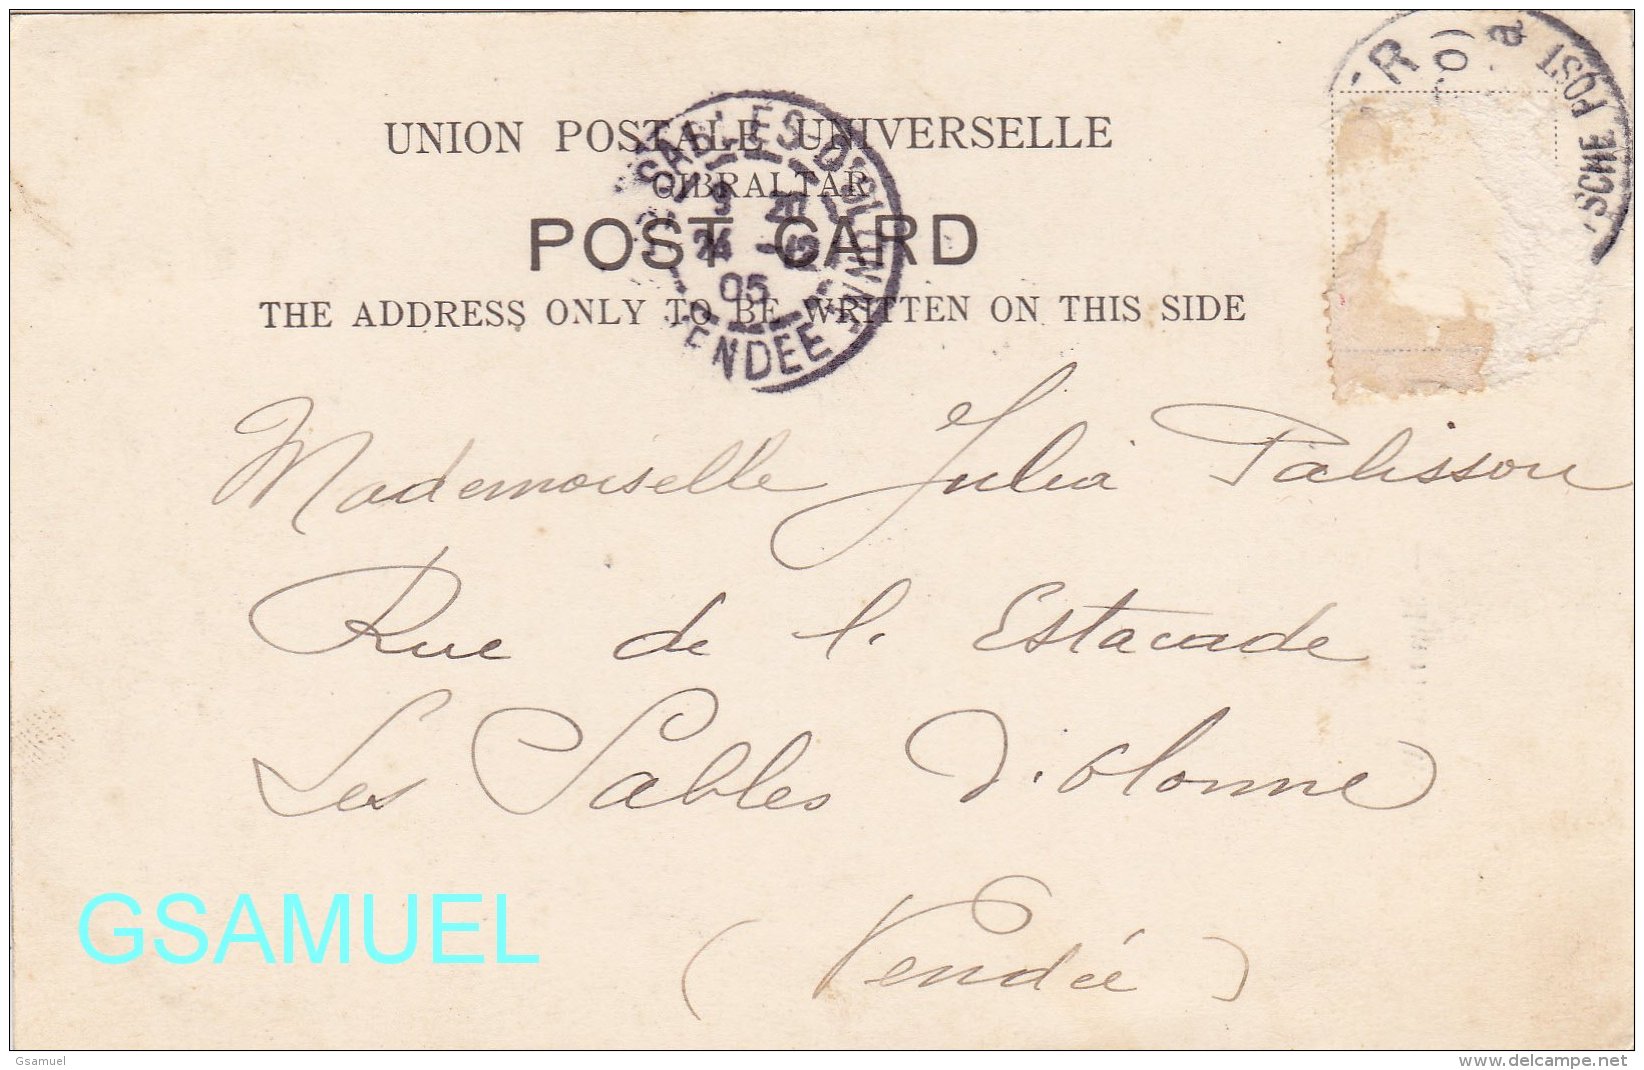 UNION POSTALE UNIVERSELLE
GIBRALTAR
POST CARD
THE ADDRESS ONLY TO BE WRITTEN ON THIS SIDE
SABLES-D'OLONNE
9 20
05
VENDEE
SCHE POST
a
Mademoiselle Julia Palisson
Rue de l'Estacade
Les Sables d'olonne
(Vendée)
GSAMUEL
Gsamuel
www.delcampe.net